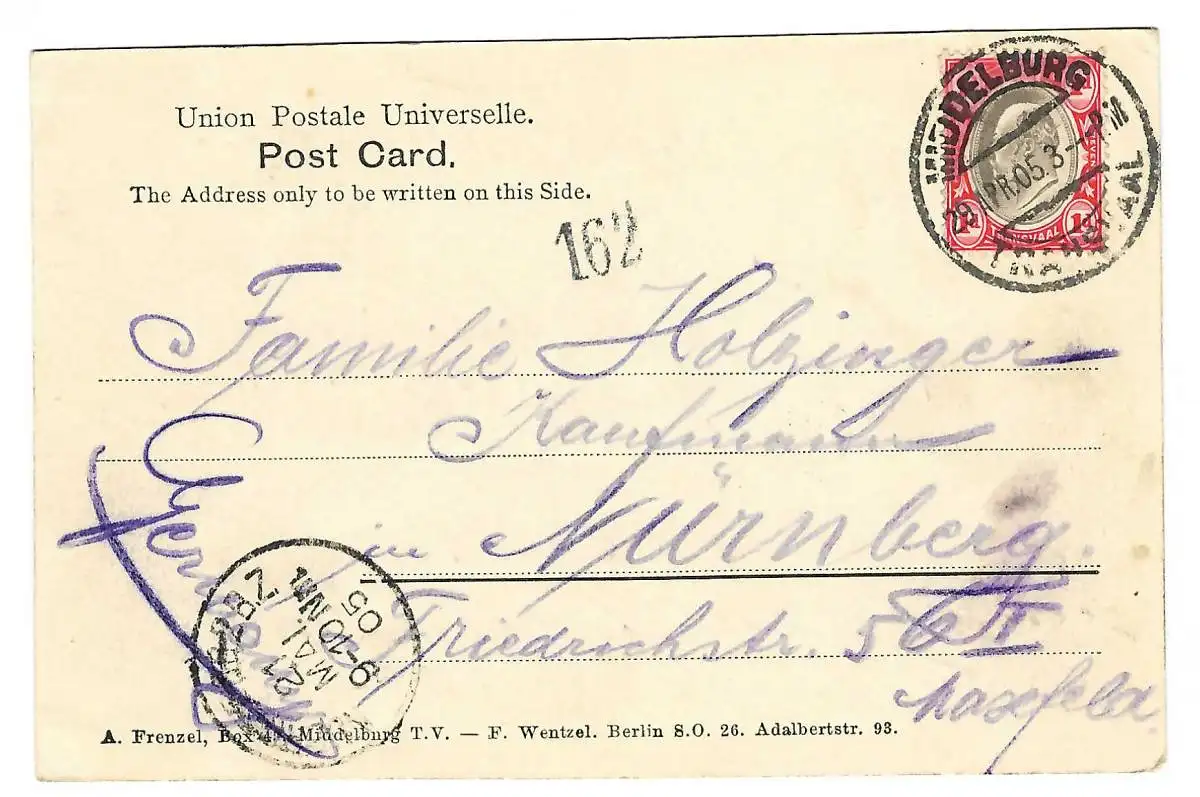 Union Postale Universelle.
Post Card.
The Address only to be written on this Side.
MIDDELBURG
29 APR.05.3-PM
TRANSVAAL
TRANSVAAL
162
Familie Holzinger
Kaufmann
in Nürnberg.
Friedrichstr. 56 II
Maxfeld
Germany
21
MAI
9-10 Nm
05
A. Frenzel, Box 4. Middelburg T.V. — F. Wentzel. Berlin S.O. 26. Adalbertstr. 93.